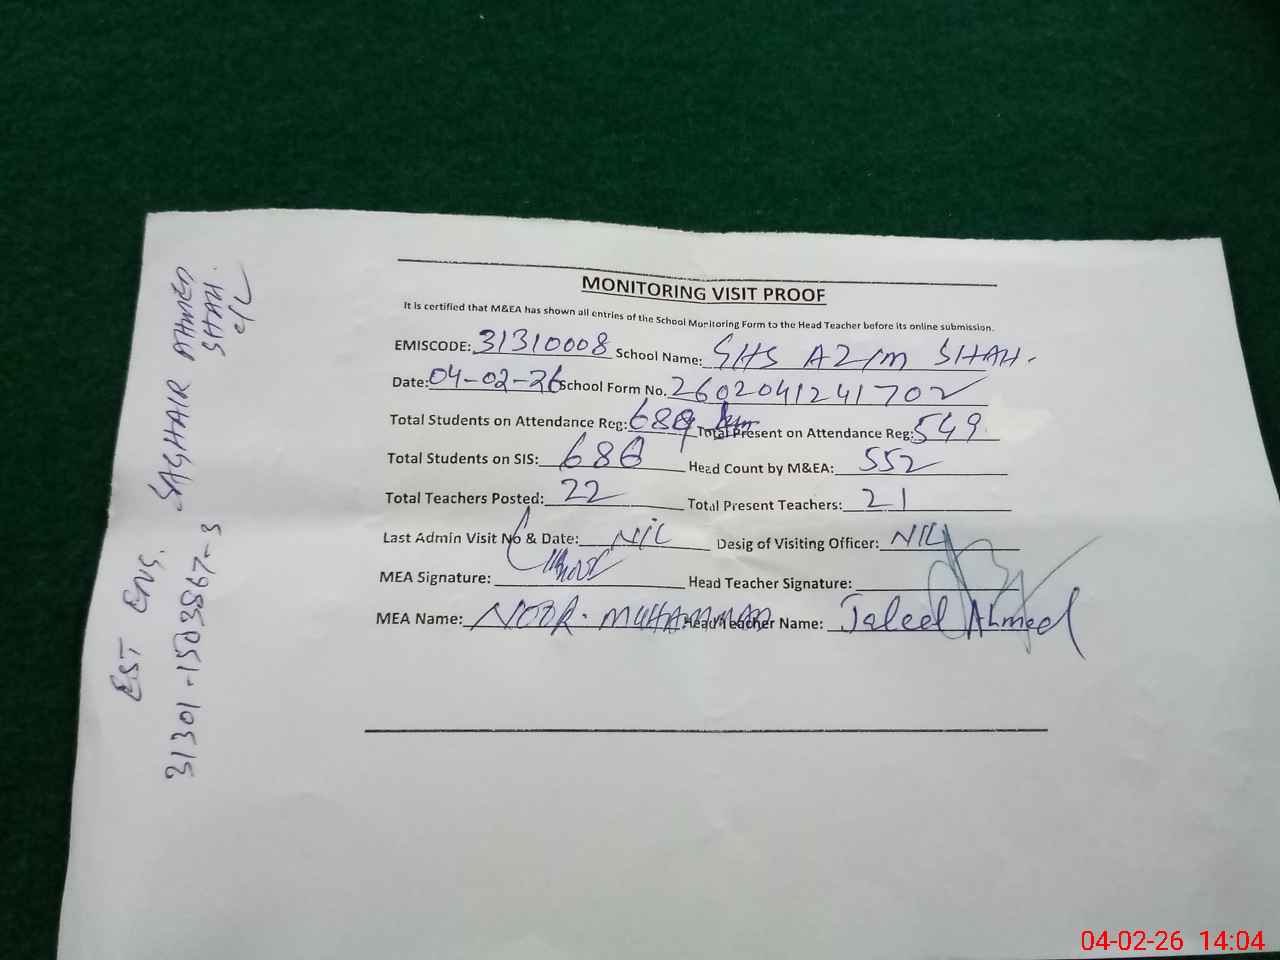 MONITORING VISIT PROOF
It is certified that M&EA has shown all entries of the School Monitoring Form to the Head Teacher before its online submission.
EMISCODE: 31310008 School Name: GHS AZIM SHAH.
Date: 04-02-26 School Form No. 2602041241702
Total Students on Attendance Reg: 689 Total Present on Attendance Reg: 549
Total Students on SIS: 686 Head Count by M&EA: 552
Total Teachers Posted: 22 Total Present Teachers: 21
Last Admin Visit No & Date: NIL Desig of Visiting Officer: NIL
MEA Signature: Head Teacher Signature:
MEA Name: NOOR. MUHAMMAD Head Teacher Name: Jaleel Ahmed
EST ENG. SAGHAIR AHMED
SHAH.
C/L
31301-1503867-3
04-02-26 14:04